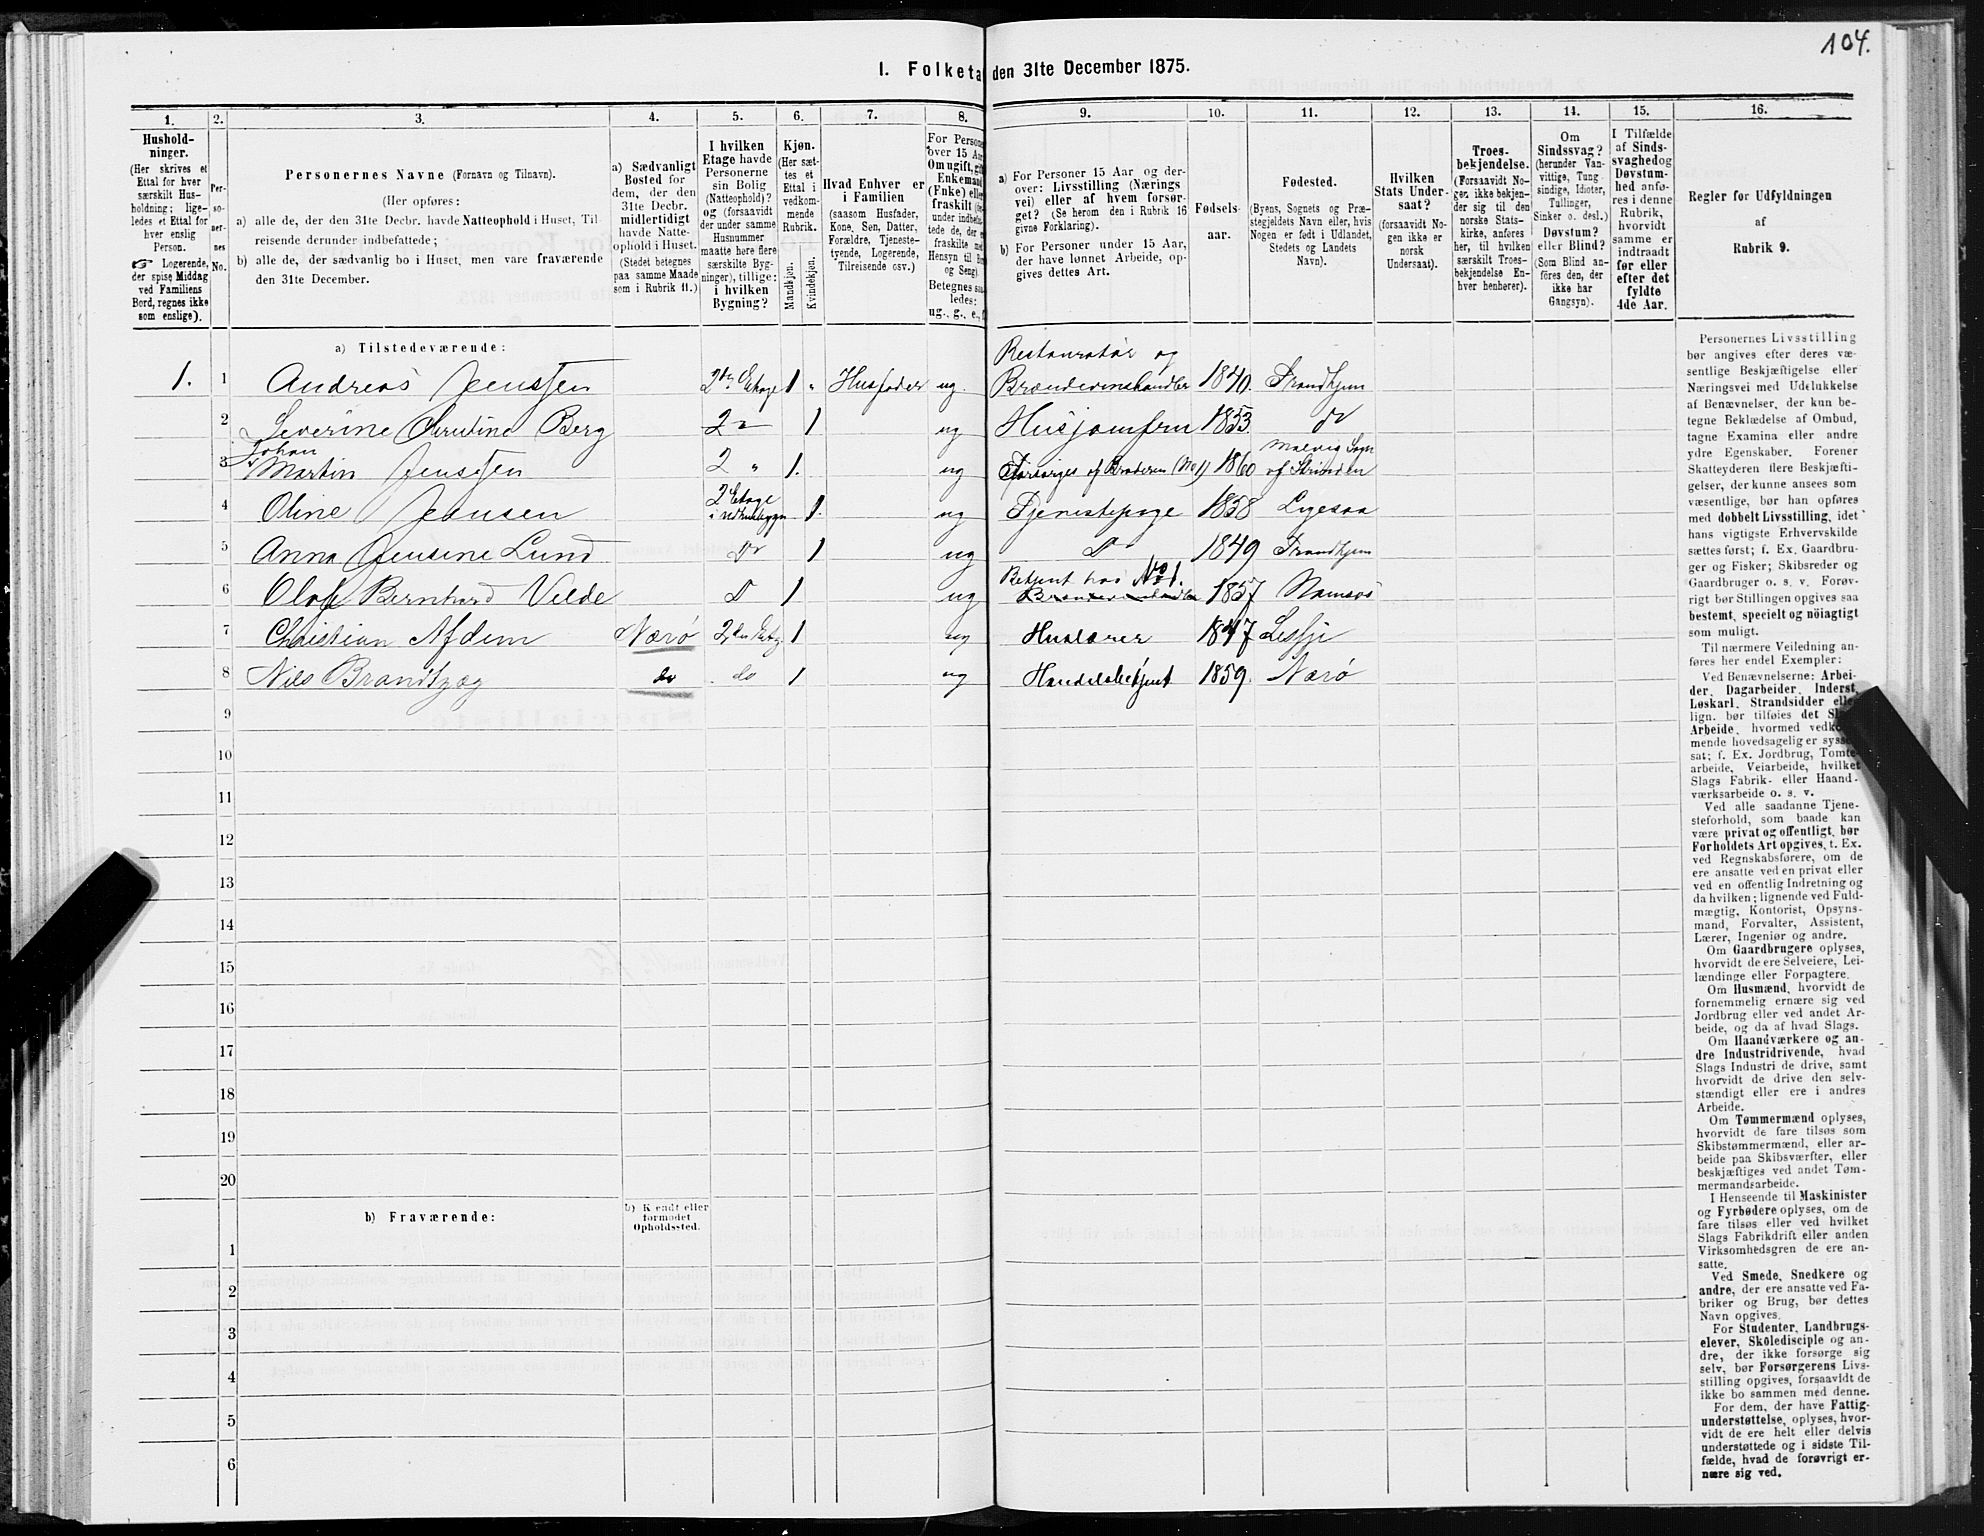 104.
1. Folketæ den 31te December 1875.
1. 2. 3. 4. 5. 6. 7. 8. 9. 10. 11. 12. 13. 14. 15. 16.
Hushold-
ninger.
(Her skrives et
Ettal for hver
særskilt Hus-
holdning; lige-
ledes et Ettal for
hver enslig
Person.
☞ Logerende,
der spise Middag
ved Familiens
Bord, regnes ikke
som enslige).
Per-
so-
ner-
nes
No.
Personernes Navne (Fornavn og Tilnavn).
(Her opføres:
a) alle de, der den 31te Decbr. havde Natteophold i Huset, Til-
reisende derunder indbefattede;
b) alle de, der sædvanlig bo i Huset, men vare fraværende
den 31te December.
a) Sædvanligt
Bosted for
dem, der den
31te Decbr.
midlertidigt
havde Natte-
ophold i Huset.
(Stedet betegnes
paa samme Maade
som i Rubrik 11.)
I hvilken
Etage havde
Personerne
sin Bolig
(Natteophold)?
og (forsaavidt
der under samme
Husnummer
maatte høre flere
særskilte Byg-
ninger), tillige:
i hvilken
Bygning?
Kjøn.
(Her sæt-
tes et
Ettal i
vedkom-
mende
Rubrik.
Mandkjøn.
Kvindekjøn.
Hvad Enhver er
i Familien
(saasom Husfader,
Kone, Søn, Datter,
Forældre, Tjeneste-
tyende, Logerende,
Tilreisende osv.)
For Persone
over 15 Aa
Om ugift, gif
Enkemand
(Enke) elle
fraskilt (
under indbe
tede de, der
fraskilte me
Hensyn til B
og Seng).
Betegnes saa
ledes:
ug., g., e.,
a) For Personer 15 Aar og der-
over: Livsstilling (Nærings
vei) eller af hvem forsør-
get? (Se herom den i Rubrik 16
givne Forklaring).
b) For Personer under 15 Aar,
der have lønnet Arbeide, op-
gives dettes Art.
Fødsels-
aar.
Fødested.
(Byens, Sognets og Præ-
stegjeldets Navn eller, hvis
Nogen er født i Udlandet,
Stedets og Landets
Navn).
Hvilken
Stats Under-
saat?
(forsaavidt No-
gen ikke er
norsk
Undersaat).
Troes-
bekjendelse.
(Forsaavidt No-
gen ikke bekjen-
der sig til den
norske Stats-
kirke, anføres
her, til hvilken
særskilt Troes-
bekjendelse En-
hver henhører).
Om
Sindssvag?
(herunder Van-
vittige, Tung-
sindige, Idioter,
Tullinger,
Sinker o. desl.)
Døvstum?
eller Blind?
(Som Blind an-
føres den, der
ikke har
Gangsyn).
I Tilfælde
af Sinds-
svaghed og
Døvstum-
hed anfø-
res i denne
Rubrik,
hvorvidt
samme er
indtraadt
før eller
efter det
fyldte
4de Aar.
Regler for Udfyldningen
af
Rubrik 9.
a) Tilstedeværende:
1. 1 Andreas Jenssen 2den Etage 1 " Husfader ug. Restauratør og Brændevinshandler 1840. Trondhjem
2 Severine Christine Berg 2 " 1 ug Husjomfru 1853 do
3 Johan Martin Jenssen 2 " 1. ug Forsørges af Broderen (No 1) 1860 Malvig Sogn af Strinden
4 Oline Jensen 2 Etage 1. ug Tjenestepige 1858
5 Anna Jensine Lund Do 1 ug Do 1849 Trondhjem
6 Olaf Bernhard Velde D 1 ug Betjent hos No 1. 1857 Namsos
7 Christian Afdem Nærø 2den Etag 1 ug Huslærer 1847 Lesje
8 Nils Brandtzæg do do 1 ug Handelsbetjent 1859. Nærø
9
10
11
12
13
14
15
16
17
18
19
20
b) Fraværende:
b) Kjendt eller
formodet
Opholdssted.
1
2
3
4
5
6
Personernes Livsstilling
bør angives efter deres væ-
sentlige Beskjæftigelse eller
Næringsvei med Udelukkelse
af Benævnelser, der kun be-
tegne Beklædelse af Ombud,
tagne Examina eller andre
ydre Egenskaber. Forener
Skatteyderen flere Beskjæfti-
gelser, der kunne ansees som
væsentlige, bør han opføres
med dobbelt Livsstilling, idet
hans vigtigste Erhvervskilde
sættes først; f. Ex. Gaardbru-
ger og Fisker; Skibsreder og
Gaardbruger o. s. v. Forøv-
rigt bør Stillingen opgives saa
bestemt, specielt og nöiagtigt
som muligt.
Til nærmere Veiledning an-
føres her endel Exempler:
Ved Benævnelserne: Arbei-
der, Dagarbeider, Inderst,
Løskarl, Strandsidder elle
lign. bør tilføies det Sl
Arbeide, hvormed vedko
mende hovedsagelig er syss
sat; f. Ex. Jordbrug, Tomte-
arbeide, Veiarbeide, hvilket
Slags Fabrik- eller Haand-
værksarbeide o. s. v.
Ved alle saadanne Tjene-
steforhold, som baade kan
være privat og offentligt, bør
Forholdets Art opgives, t. Ex.
ved Regnskabsførere, om de
ere ansatte ved en privat eller
ved en offentlig Indretning og
da hvilken; lignende ved Fuld-
mægtig, Kontorist, Opsyns-
mand, Forvalter, Assistent,
Lærer, Ingeniør og andre.
Om Gaardbrugere oplyses,
hvorvidt de ere Selveiere, Lei-
lændinge eller Forpagtere.
Om Husmænd, hvorvidt de
fornemmelig ernære sig ved
Jordbrug eller ved andet Ar-
beide, og da af hvad Slags.
Om Haandværkere og an-
dre Industridrivende, hvad
Slags Industri de drive, samt
hvorvidt de drive den selv-
stændigt eller ere i andres
Arbeide.
Om Tømmermænd oplyses,
hvorvidt de fare tilsøs som
Skibstømmermænd, eller ar-
beide paa Skibsværfter, eller
beskjæftiges ved andet Tøm-
mermandsarbeide.
I Henseende til Maskinister
og Fyrbødere oplyses, om de
fare tilsøs eller ved hvilket
Slags Fabrikdrift eller anden
Virksomhedsgren de ere an-
satte.
Ved Smede, Snedkere og
andre, der ere ansatte ved Fa-
briker og Brug, bør dettes
Navn opgives.
For Studenter, Landbrugs-
elever, Skoledisciple og an-
dre, der ikke forsørge sig
selv, bør Forsørgerens Livs-
stilling opgives, forsaavidt de
ikke bo sammen med denne.
For dem, der have Fattig-
understøttelse, oplyses, hvor-
vidt de ere helt eller delvis
understøttede og i sidste Til-
fælde, hvad de forøvrigt er-
nære sig ved.